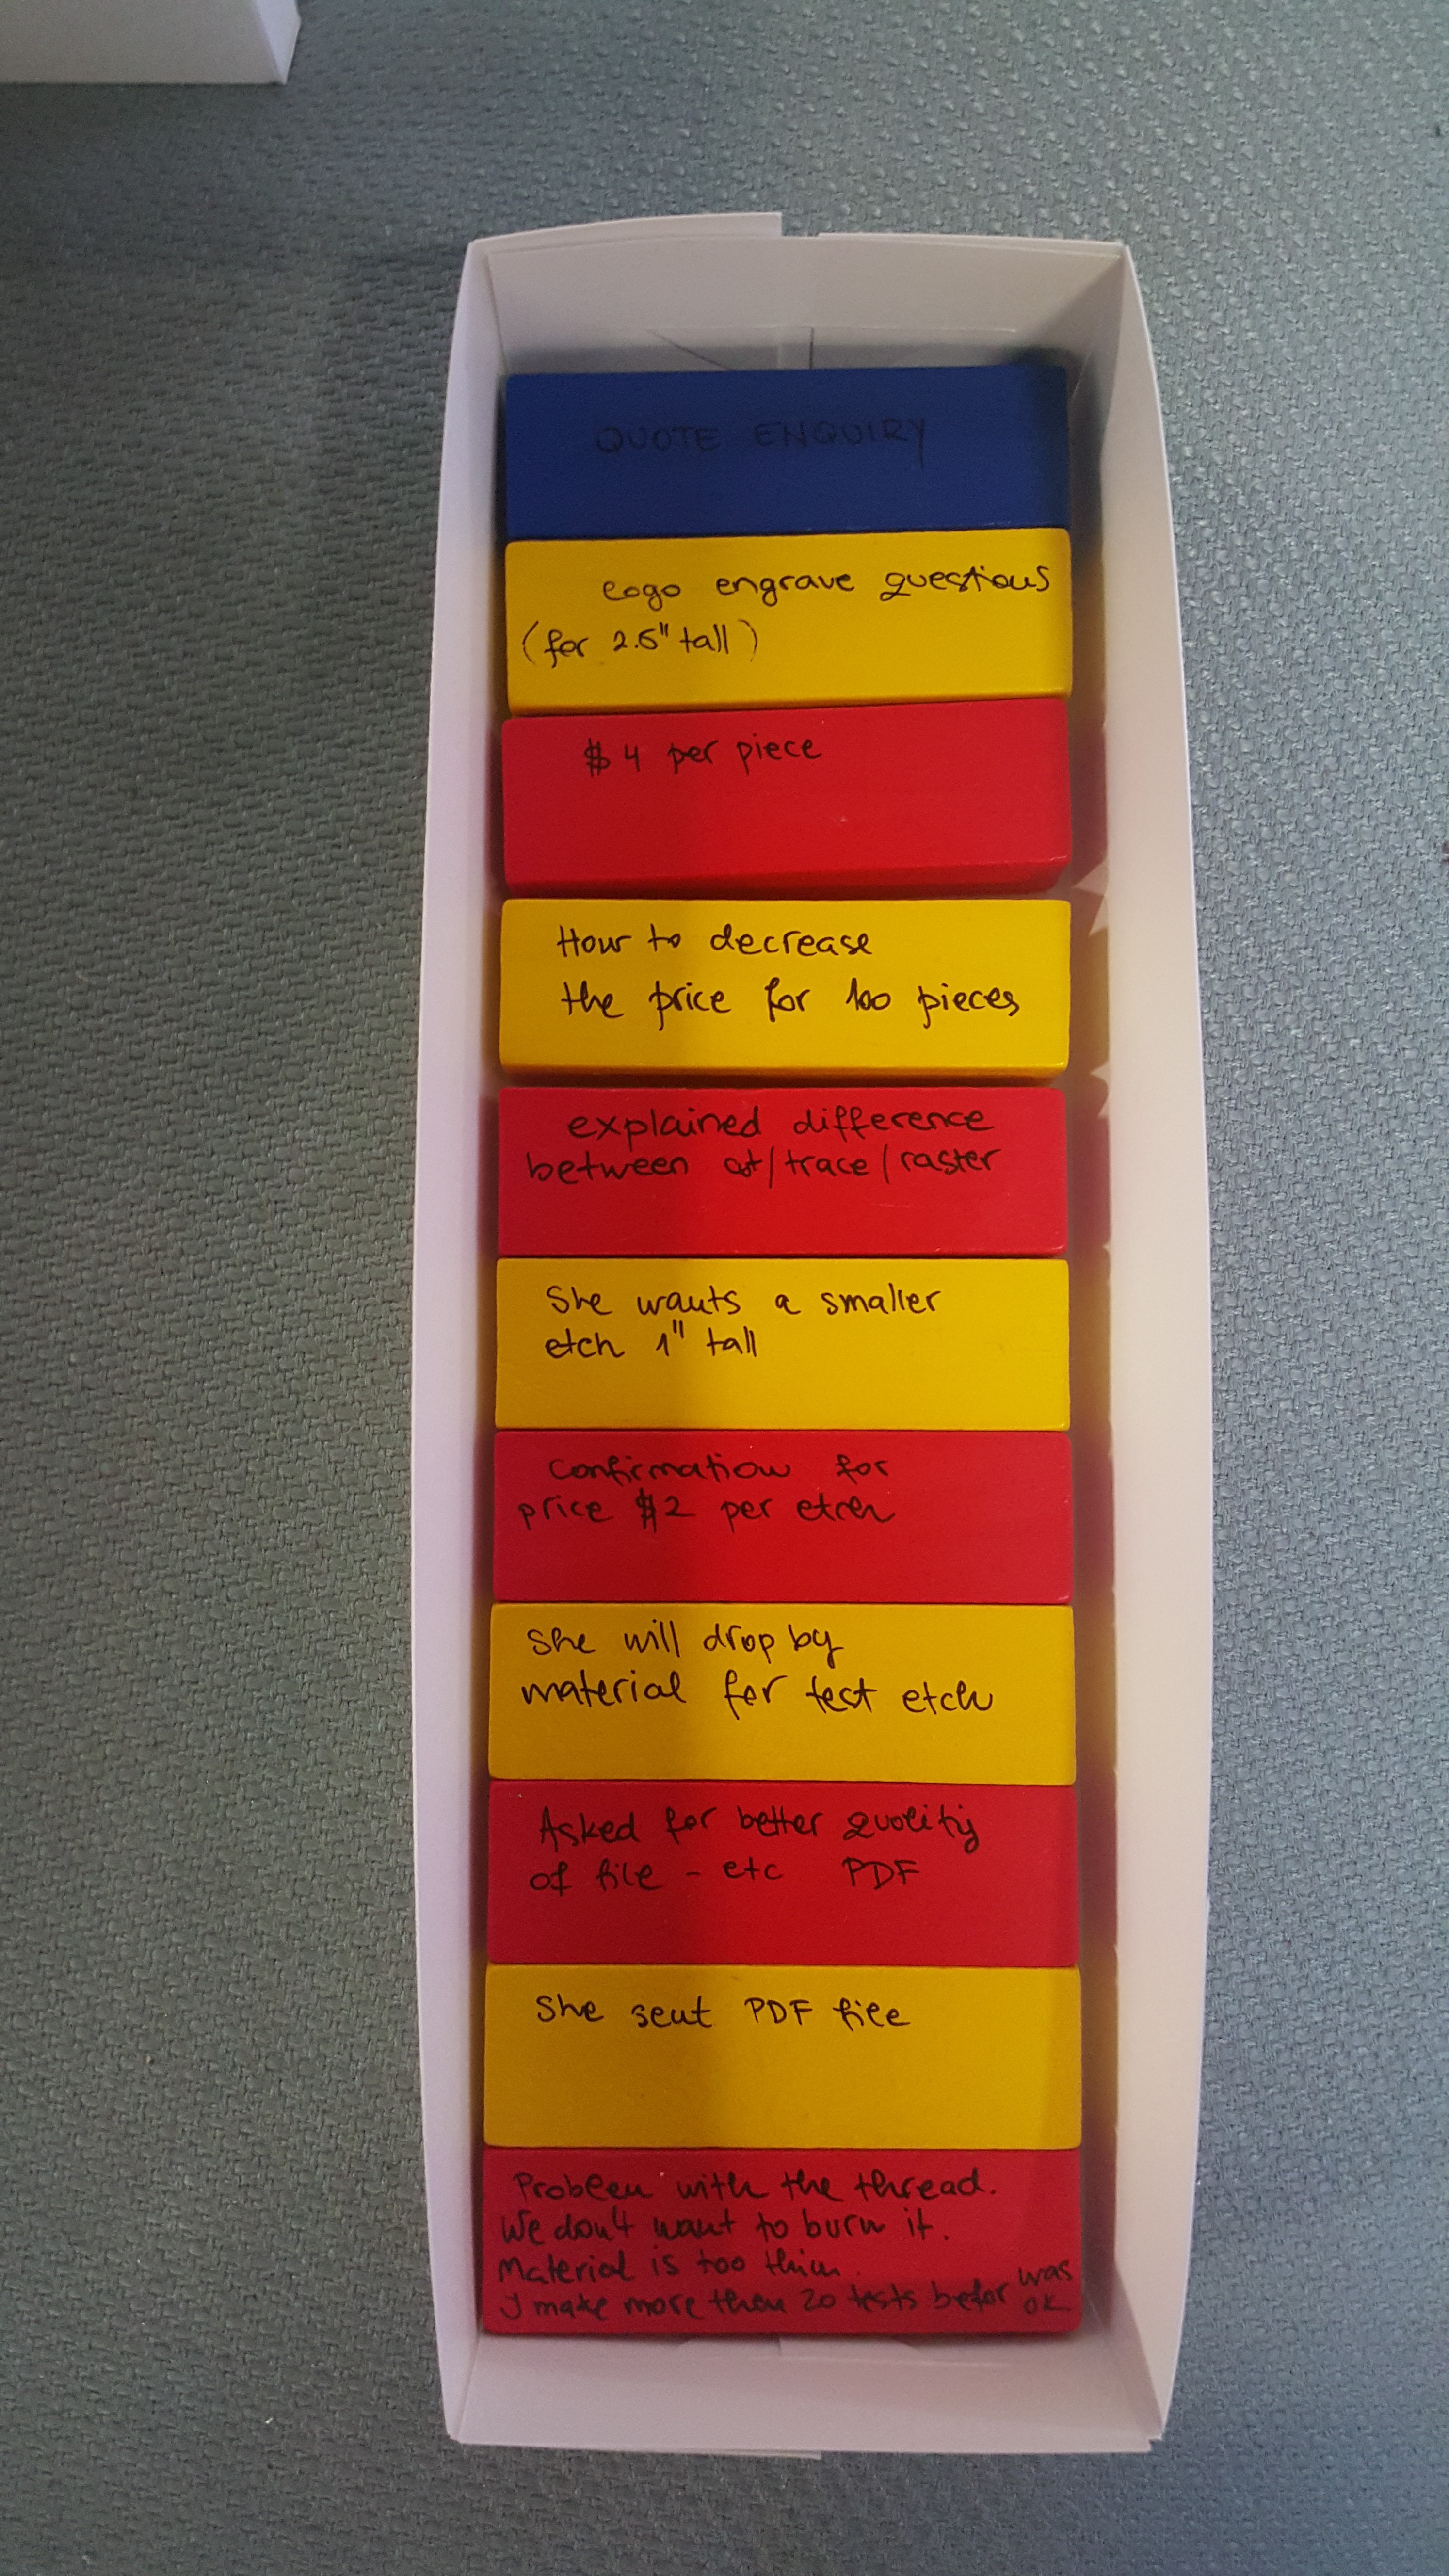 QUOTE ENQUIRY
logo engrave questions
(for 2.5" tall)
$4 per piece
How to decrease
the price for 100 pieces
explained difference
between cut/trace/raster
She wants a smaller
etch 1" tall
Confirmation for
price $2 per etch
She will drop by
material for test etch
Asked for better quality
of file - etc PDF
She sent PDF file
Problem with the thread.
We don't want to burn it.
Material is too thin.
I make more then 20 tests befor was
ok